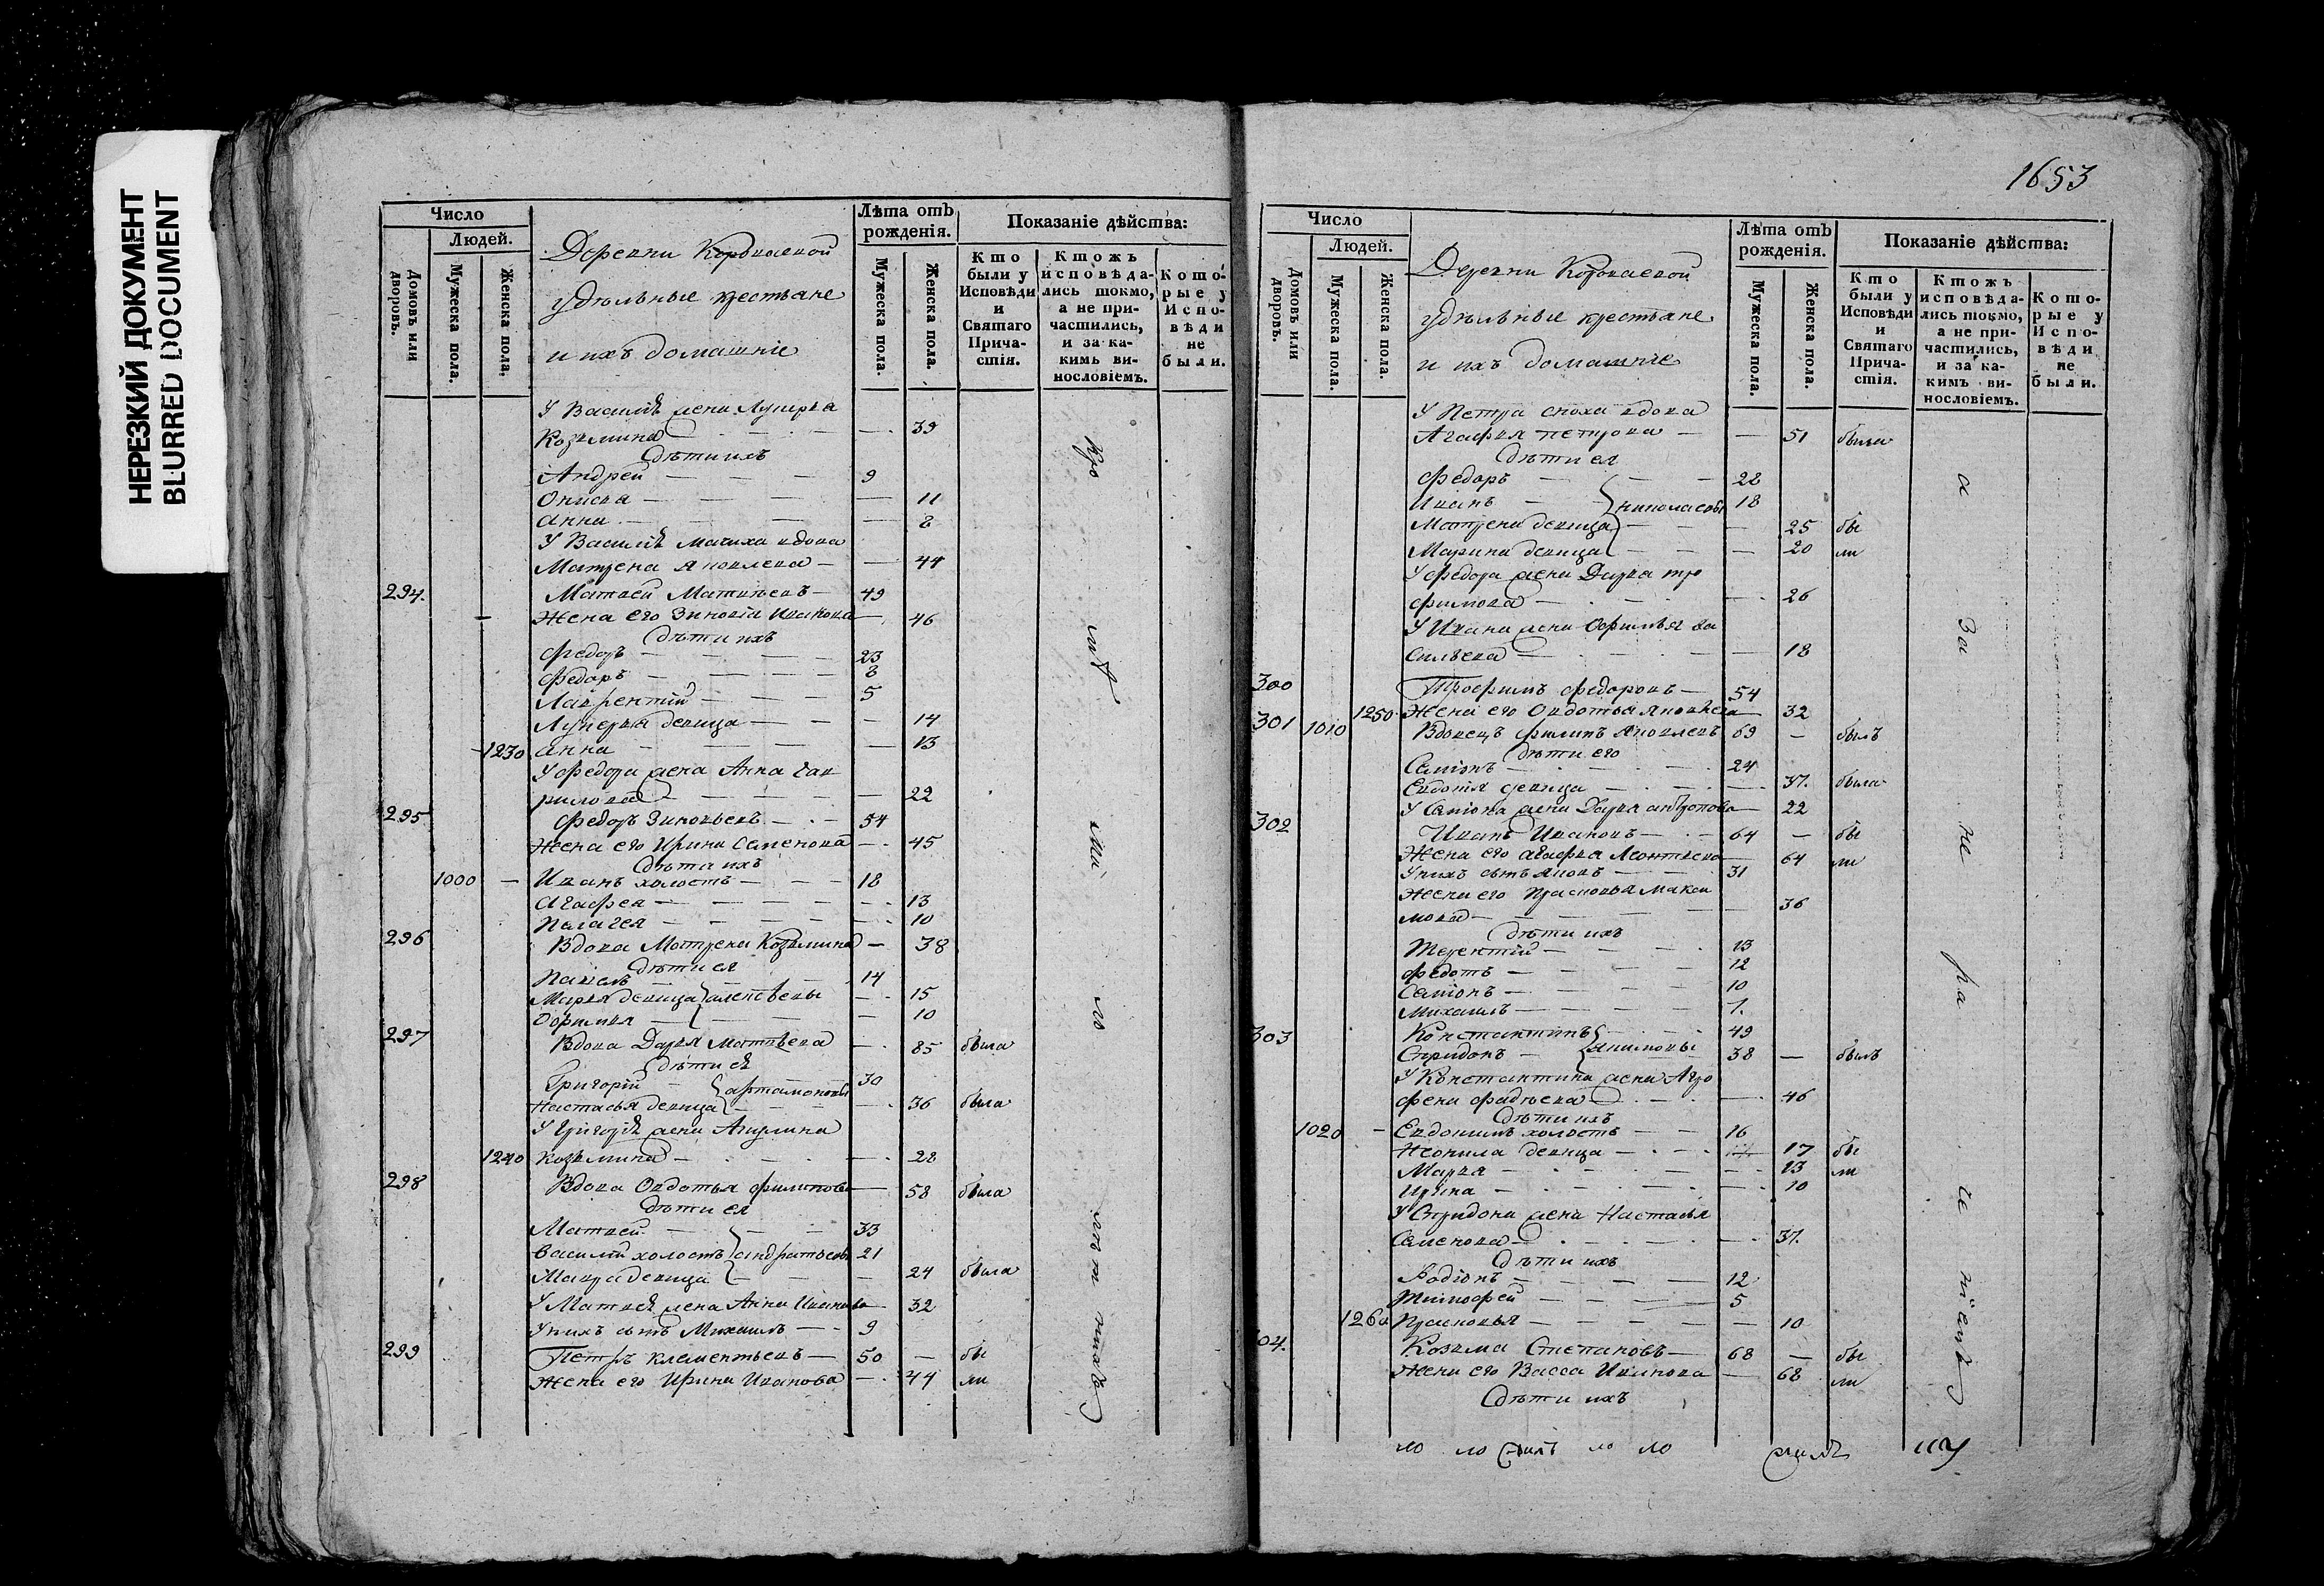 НЕРЕЗКИЙ ДОКУМЕНТ
BLURRED DOCUMENT
Число
Людей.
Домовъ или дворовъ.
Мужеска пола.
Женска пола.
Деревни
удѣльные крестьяне
и ихъ домашніе
Лѣта отъ рожденія.
Мужеска пола.
Женска пола.
Показаніе дѣйства:
Кто были у Исповѣди и Святаго Причастія.
Ктожъ исповѣдались токмо, а не причастились, и за какимъ винословіемъ.
Которые у Исповѣди не были.
У Василія жена Лукерья
Козьмина — 39
дѣти ихъ
Андрей — 9
11
Анна — 8
У Василія мачиха вдова
Матрена Яковлева — 44
294. Матвей Матвѣевъ — 49
Жена его Зиновія Иванова — 46
дѣти ихъ
Федоръ — 23
Федоръ — 8
Лаврентій — 5
Лукерья девица — 14
1230 Анна — 13
У Федора жена Анна Гав
рилова — 22
295 Федоръ Зиновьевъ — 54
Жена его Ирина Семенова — 45
дѣти ихъ
1000 — Иванъ холостъ — 18
Агафья — 13
Палагея — 10
296 Вдова Матрена Козьмина — 38
дѣти ея
Павелъ — 14
Марья девица } алексѣевы — 15
Офимья — 10
297 Вдова Дарья Матвѣева — 85 была
дѣти ея
Григорій — } артамоновы 30
Настасья девица — 36 была
У Григорія жена Акулина
1240 Козьмина — 28
298 Вдова Овдотья Филипова — 58 была
дѣти ея
Матвей — 33
Василій холостъ } андреяновы 21
Мавра девица — 24 была
У Матвея жена Анна Иванова — 32
У нихъ сынъ Михаилъ — 9
299 Петръ Клементьевъ — 50 — бы
Жена его Ирина Иванова — 44 ли
1653
Число
Людей.
Домовъ или дворовъ.
Мужеска пола.
Женска пола.
Деревни
удѣльные крестьяне
и ихъ домашніе
Лѣта отъ рожденія.
Мужеска пола.
Женска пола.
Показаніе дѣйства:
Кто были у Исповѣди и Святаго Причастія.
Ктожъ исповѣдались токмо, а не причастились, и за какимъ винословіемъ.
Которые у Исповѣди не были.
У Петра сноха вдова
Агафья Петрова — 51 была
дѣти ея
Федоръ — 22
Иванъ — } николаевы 18
Матрена девица — 25 бы
Марина девица — 20 ли
У Федора жена Дарья Тро
фимова — 26
У Ивана жена Офимья Ва
сильева — 18
300 Трофимъ Федоровъ — 54
1250 Жена его Овдотья Яковлева — 32
301 1010 Вдовецъ Филипъ Яковлевъ 69 — былъ
дѣти его
Семіонъ — 24
Евдотія девица — 37. была
У Семіона жена Дарья — 22
302 Иванъ Ивановъ — 64 — бы
Жена его Агафья Леонтьева — 64 ли
У нихъ сынъ Яковъ — 31
Жена его Прасковья Макси
мова — 36
дѣти ихъ
Терентій — 13
Федотъ — 12
Семіонъ — 10
Михаилъ — 7.
303 Константинъ — 49
Спридонъ — } якимовы 38 — былъ
У Константина жена Агро
фена Фадѣева — 46
дѣти ихъ
1020 — Евдокимъ холостъ — 16
Неонила девица — 17 бы
Марья — 13 ли
Ирина — 10
У Спридона жена Настасья
Семенова — 37.
дѣти ихъ
Родіонъ — 12
Тимофей — 5
1260 Прасковья — 10
04. Козьма Степановъ — 68 — бы
Жена его Васса Иванова — 68 ли
дѣти ихъ